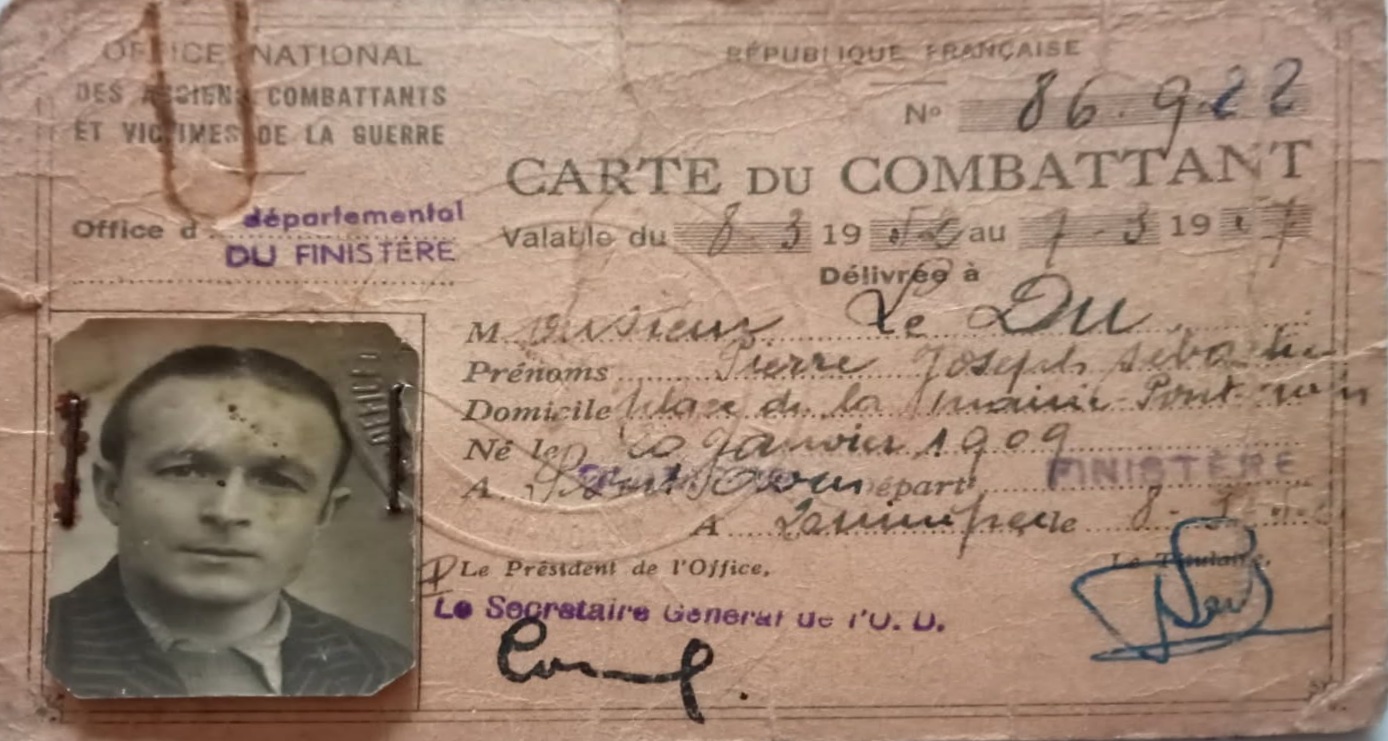 OFFICE NATIONAL
DES ANCIENS COMBATTANTS
ET VICTIMES DE LA GUERRE
Office d départemental
DU FINISTÈRE
RÉPUBLIQUE FRANÇAISE
No 86.922
CARTE DU COMBATTANT
Valable du 8 3 19 au 7 - 3 19
Délivrée à
Monsieur Le Du
Prénoms Pierre Joseph Sébastien
Domicile place de la mairie Pont
Né le 20 janvier 1909
A Départ FINISTÈRE
A Quimper le 8 -
Le Président de l'Office, Le Titulaire,
Le Secrétaire Général de l'O. D.